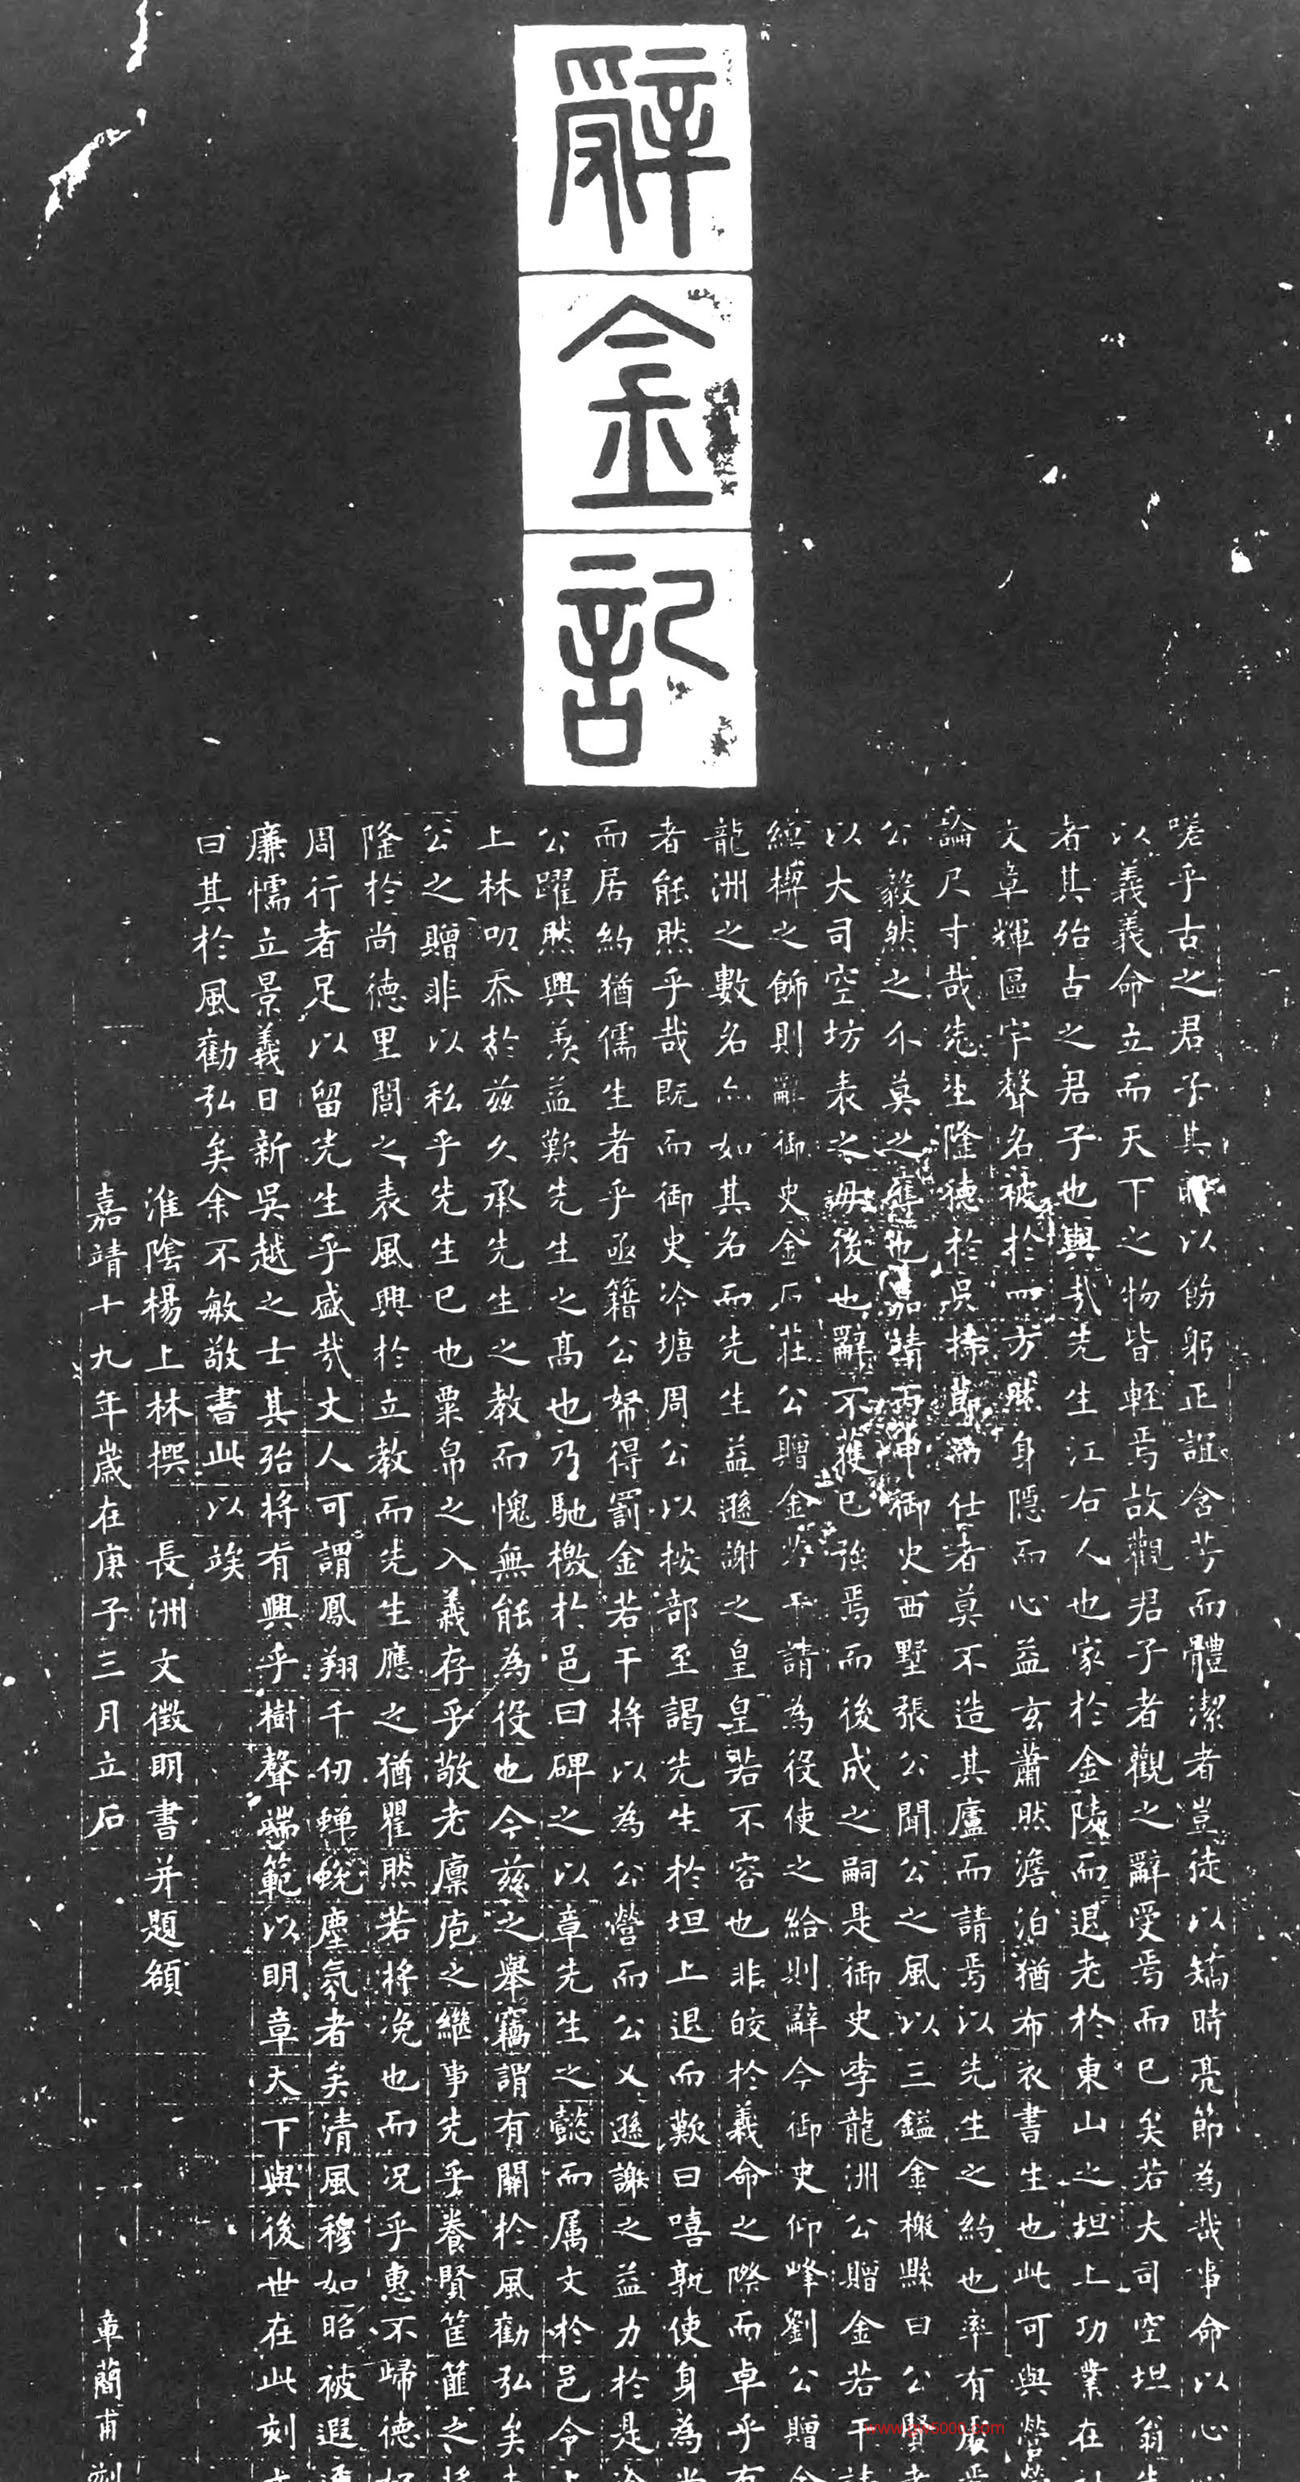 辭金記
嗟乎古之君子其所以飭躬正誼含芳而體潔者豈徒以矯時亮節為哉事命以心
以義義命立而天下之物皆輕焉故觀君子者觀之辭受焉而已矣若大司空坦翁
者其殆古之君子也與哉先生江右人也家於金陵而退老於東山之坦上功業在
文章輝區宇聲名被於四方然身隱而心益玄蕭然澹泊猶布衣書生也此可與
論尺寸哉先生隆德於吳搢紳仕者莫不造其廬而請焉以先生之約也率有
公毅然之不莫之應也嘉靖丙申御史西墅張公聞公之風以三鎰金檄縣曰公賢
以大司空坊表之毋後也辭不獲已強焉而後成之嗣是御史李龍洲公贈金若干
綎楔之飾則辭御史金石莊公贈金若干請為役使之給則辭今御史仰峰劉公贈
龍洲之數名亦如其名而先生益遜謝之皇皇若不容也非皎於義命之際而卓乎有
者能然乎哉既而御史冷塘周公以按部至謁先生於坦上退而歎曰嘻孰使身為
而居約猶儒生者乎亟籍公帑得罰金若干將以為公營而公又遜謝之益力於是
公躍然興羨益歎先生之高也乃馳檄於邑曰碑之以章先生之懿而属文於邑令
上林叨忝於茲久承先生之教而愧無能為役也今茲之舉竊謂有關於風勸弘矣
公之贈非以私乎先生已也粟帛之入義存乎敬老廩庖之繼事先乎養賢筐篚之
隆於尚德里閭之表風興於立教而先生應之猶瞿然若將浼也而况乎惠不歸德
周行者足以留先生乎盛哉丈人可謂鳳翔千仞蟬蛻塵氛者矣清風穆如昭被遐
廉懦立景義日新吳越之士其殆將有興乎樹聲端範以明章天下與後世在此刻
曰其於風勸弘矣余不敏敬書此以竢
淮陰楊上林撰 長洲文徵明書并題額
嘉靖十九年歲在庚子三月立石 章簡甫刻
www.yw5000.com